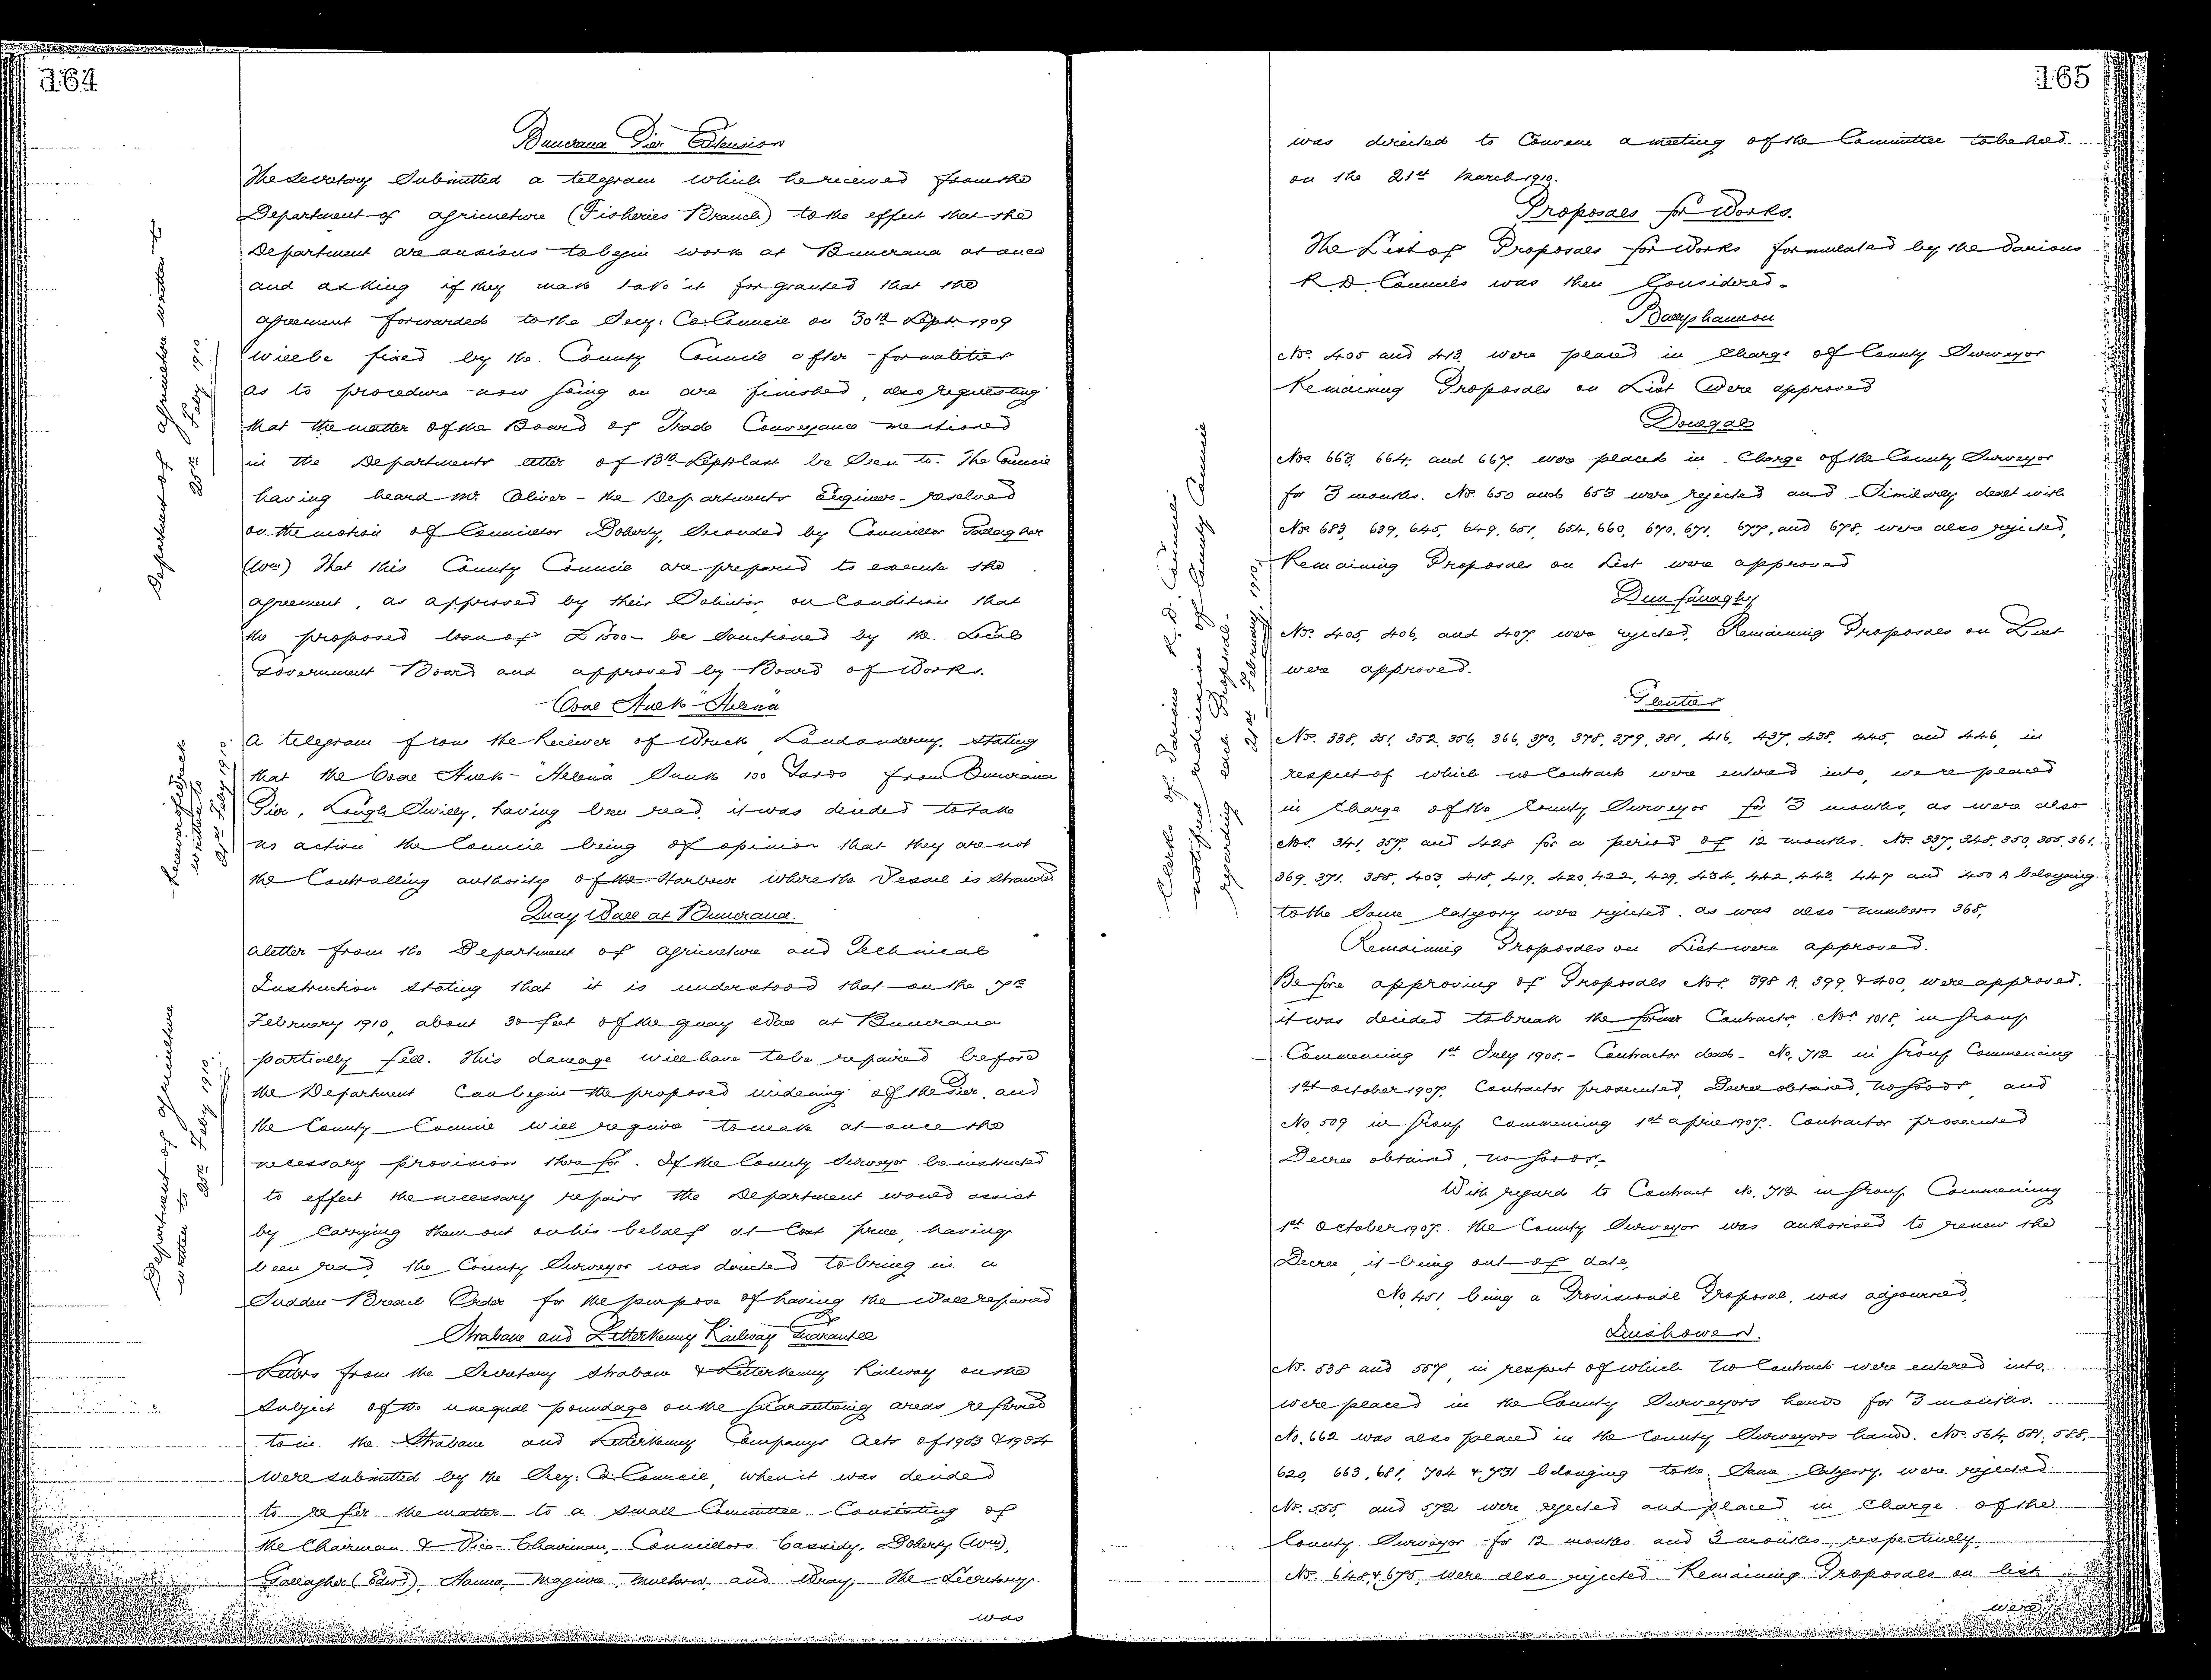 164
Buncrana Pier Extension
The Secretary Submitted a telegram which he received from the
Department of Agriculture (Fisheries Branch) to the effect that the
Department are anxious to begin work at Buncrana at once
and asking if they may take it for granted that the
agreement forwarded to the Secy. Co. Council on 30th Sept. 1909
will be fixed by the County Council after formalities
as to procedure now going on are finished, also requesting
that the matter of the Board of Trade Conveyance mentioned
in the Departments letter of 13th Sept last be Seen to. The Council
having heard Mr. Oliver - the Departments Engineer - resolved
on the motion of Councillor Doherty, Seconded by Councillor Gallagher
(Wm) That this County Council are prepared to execute the
agreement, as approved by their Solicitor, on Condition that
the proposed loan of £1500 - be Sanctioned by the Local
Government Board and approved by Board of Works.
Department of Agriculture written to
25th Feby 1910.
Coal Hulk "Helena"
A telegram from the Receiver of Wreck, Londonderry, Stating
that the Coal Hulk - "Helena" Sunk 100 Yards from Buncrana
Pier, Lough Swilly, having been read, it was decided to take
no action the Council being of opinion that they are not
the Controlling authority of the Harbour where the Vessel is Stranded
Receiver of Wreck
written to
25th Feby 1910.
Quay Wall at Buncrana.
A letter from the Department of Agriculture and Technical
Instruction Stating that it is understood that on the 7th
February 1910, about 30 feet of the quay Wall at Buncrana
partially fell. This damage will have to be repaired before
the Department Can begin the proposed widening of the Pier, and
the County Council will require to make at once the
necessary provision therefor. If the County Surveyor be instructed
to effect the necessary repairs the Department would assist
by Carrying them out on his behalf at Cost price, having
been read, the County Surveyor was directed to bring in a
Sudden Breach Order for the purpose of having the Wall repaired
Department of Agriculture
written to
25th Feby 1910.
Strabane and Letterkenny Railway Guarantee
Letters from the Secretary Strabane & Letterkenny Railway on the
Subject of the unequal poundage on the Guaranteeing areas referred
to in the Strabane and Letterkenny Companys Acts of 1903 & 1904
were submitted by the Secy: Co. Council, when it was decided
to refer the matter to a Small Committee Consisting of
the Chairman & Vice-Chairman, Councillors Cassidy, Doherty (Wm),
Gallagher (Edwd), Hanna, Maguire, and Wray. The Secretary
was
165
was directed to Convene a meeting of the Committee to be held
on the 21st March 1910.
Proposals for Works.
The List of Proposals for Works formulated by the Various
R. D. Councils was then Considered.
Clerks of Various R. D. Councils
notified of County Council
regarding each Proposal.
21st February, 1910.
Ballyshannon
Nos. 405 and 413, were placed in Charge of County Surveyor
Remaining Proposals on List Were approved
Donegal
Nos. 663, 664, and 667, were placed in Charge of the County Surveyor
for 3 months. Nos. 650 and 653 were rejected and Similarly dealt with
Nos. 683, 639, 645, 649, 651, 654, 660, 670, 671, 677, and 678, were also rejected,
Remaining Proposals on List were approved
Dunfanaghy
Nos. 405, 406, and 407, were rejected, Remaining Proposals on List
were approved.
Glenties
Nos. 338, 351, 352, 356, 366, 370, 378, 379, 381, 416, 437, 438, 445, and 446, in
respect of which no Contracts were entered into, were placed
in Charge of the County Surveyor for 3 months, as were also
Nos. 341, 357, and 428 for a period of 12 months. Nos. 337, 348, 350, 355, 361,
369, 371, 388, 403, 418, 419, 420, 422, 429, 434, 442, 443, 447 and 450 A belonging
to the Same Category were rejected. as was also number 368,
Remaining Proposals on List were approved.
Before approving of Proposals Nos. 398 A, 399, & 400, were approved.
it was decided to break the former Contracts, Nos. 1018, in Group
Commencing 1st July 1905. - Contractor dead - No. 712 in Group Commencing
1st October 1907, Contractor prosecuted, Decree obtained, no goods, and
No, 509 in Group Commencing 1st April 1907. Contractor prosecuted
Decree obtained, no goods.
With regard to Contract No. 712 in Group Commencing
1st October 1907. the County Surveyor was authorised to renew the
Decree, it being out of date,
No, 451, being a Provisional Proposal, was adjourned,
Inishowen.
Nos. 538 and 557, in respect of which no Contracts were entered into,
were placed in the County Surveyors hands for 3 months.
No. 662 was also placed in the County Surveyors hands. Nos. 564, 581, 588,
620, 663, 681, 704 & 731 belonging to the Same Category, were rejected
Nos. 555, and 572 were rejected and placed in Charge of the
County Surveyor for 12 months and 3 months, respectively
Nos. 648 & 675, were also rejected. Remaining Proposals on list
were